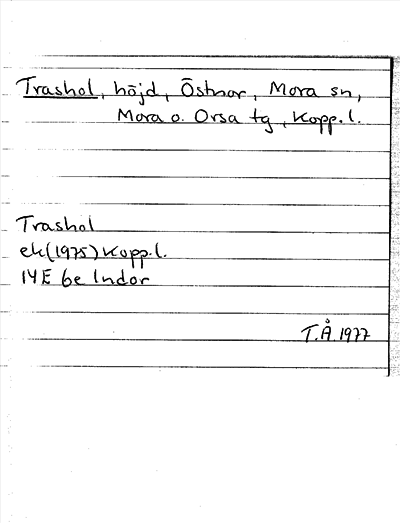 Trashol, höjd, Östnor, Mora sn,
Mora o. Orsa tg, Kopp.l.
Trashol
ek(1975) Kopp.l.
14E 6e Indor
T.Å.1977